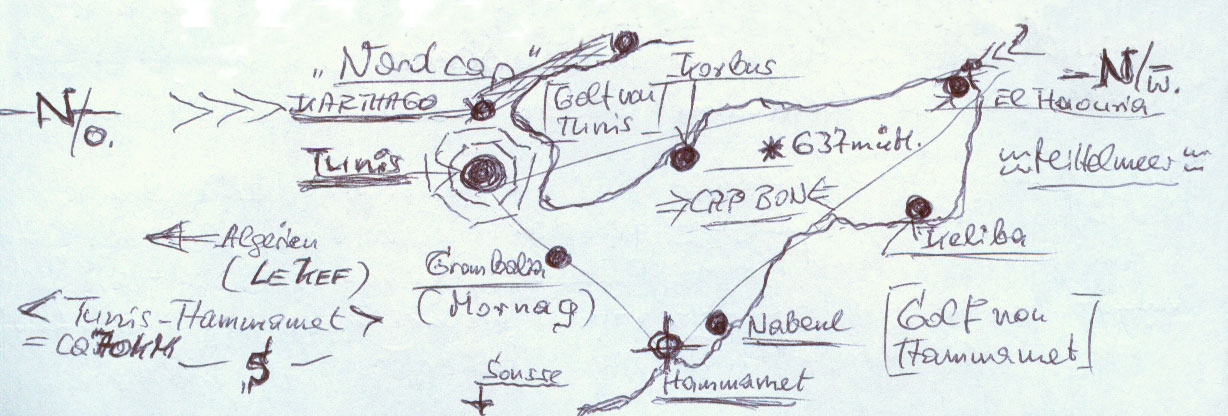 „Nordcap“
Korbus
N/o.
KARTHAGO
[Golf von
Tunis]
El Haouria
N/w.
Tunis
* 637 müM.
Mittelmeer
CAP BONE
Keliba
Algerien
(LE KEF)
Grombalia
(Mornag)
< Tunis-Hammamet >
= ca 70KM
S
Nabeul
[Golf von
Hammamet]
Sousse
Hammamet